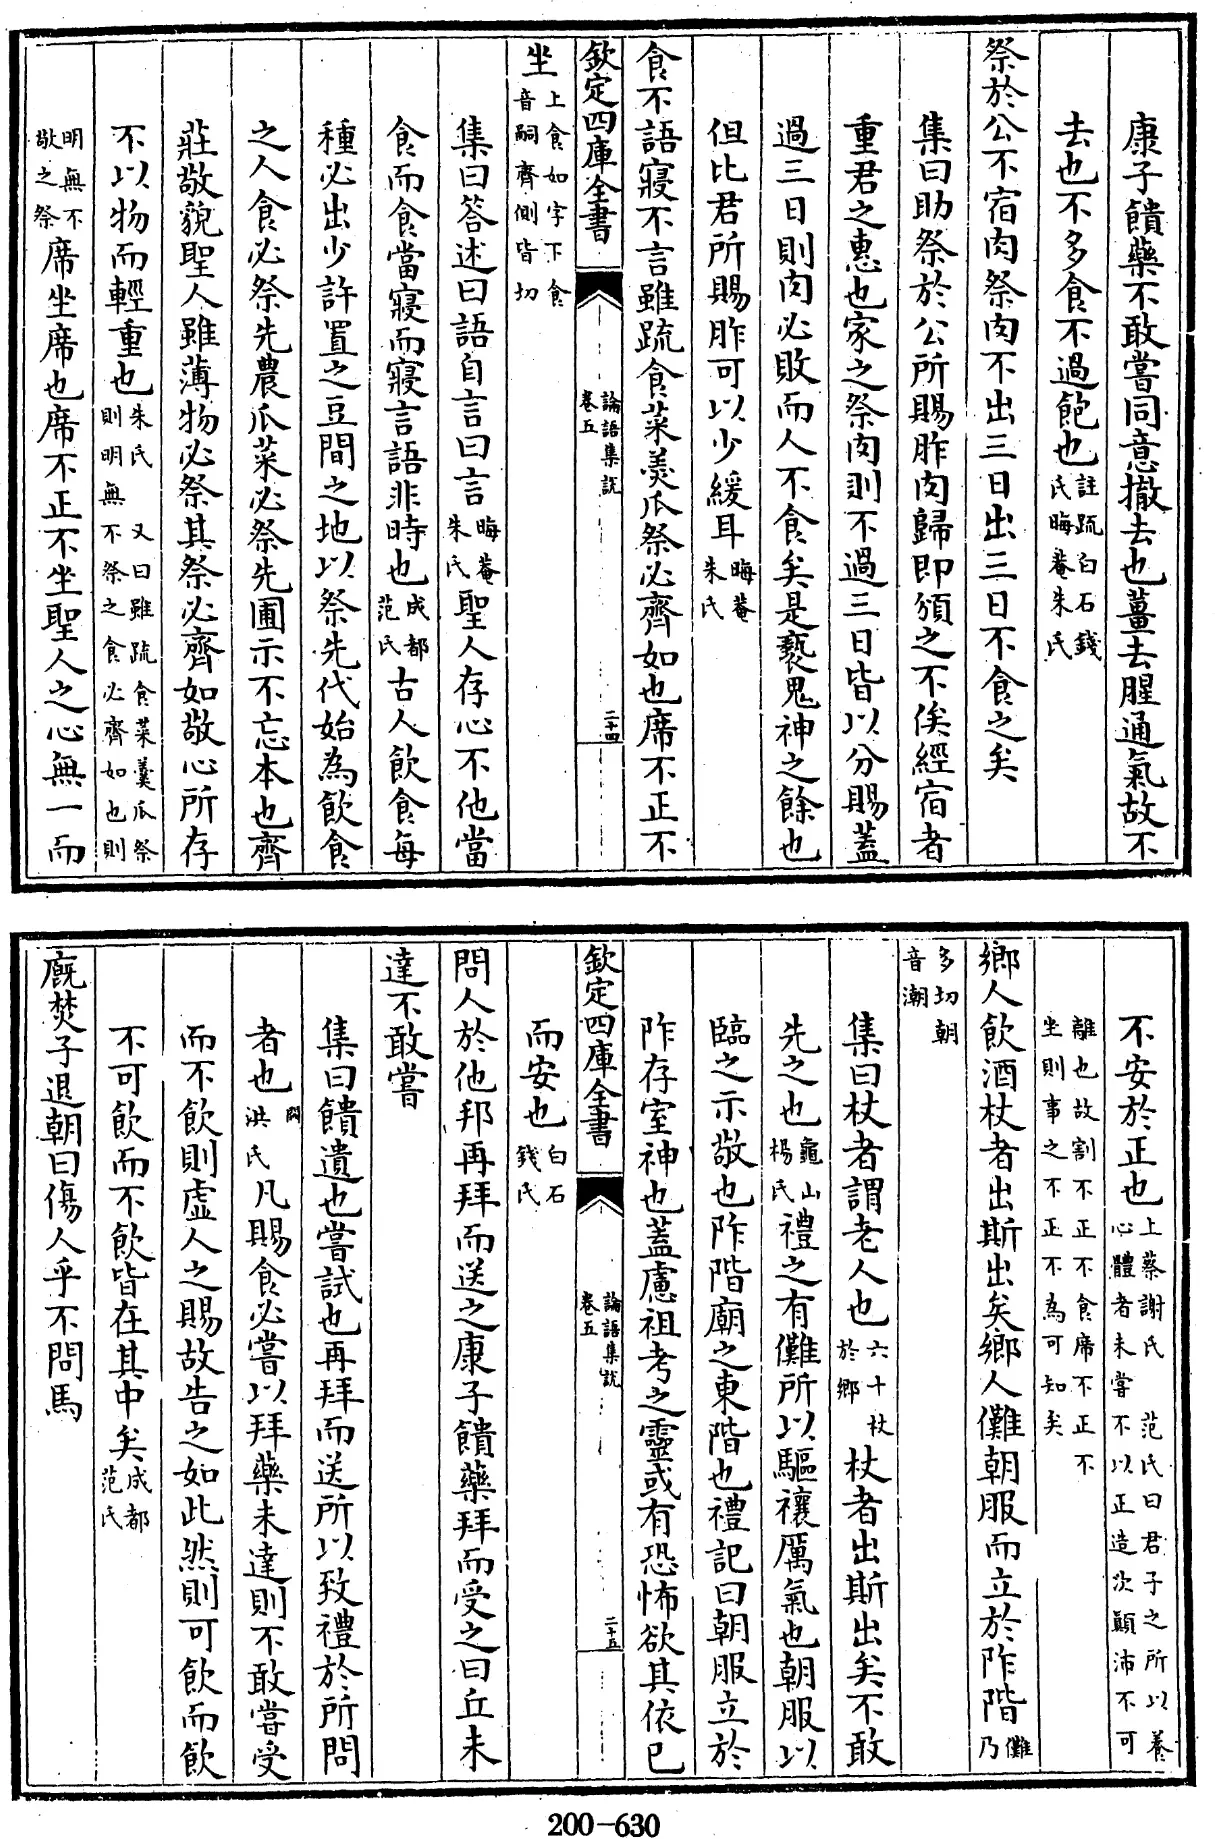 康子饋藥不敢嘗同意撤去也薑去腥通氣故不
去也不多食不過飽也註疏白石錢氏晦菴朱氏
祭於公不宿肉祭肉不出三日出三日不食之矣
集曰助祭於公所賜胙肉歸即頒之不俟經宿者
重君之惠也家之祭肉則不過三日皆以分賜蓋
過三日則肉必敗而人不食矣是褻鬼神之餘也
但比君所賜胙可以少緩耳晦菴朱氏
食不語寢不言雖疏食菜羮瓜祭必齊如也席不正不
欽定四庫全書 論語集說卷五 二十四
坐上食如字下食音嗣齊側皆切
集曰答述曰語自言曰言晦菴朱氏聖人存心不他當
食而食當寢而寢言語非時也成都范氏古人飲食每
種必出少許置之豆間之地以祭先代始為飲食
之人食必祭先農瓜菜必祭先圃示不忘本也齊
莊敬貌聖人雖薄物必祭其祭必齊如敬心所存
不以物而輕重也朱氏 又曰雖疏食菜羹瓜祭則明無不祭之食必齊如也則
明無不敬之祭席坐席也席不正不坐聖人之心無一而
不安於正也上蔡謝氏 范氏曰君子之所以養心體者未嘗不以正造次顛沛不可
離也故割不正不食席不正不坐則事之不正不為可知矣
鄉人飲酒杖者出斯出矣鄉人儺朝服而立於阼階儺乃
多切朝音潮
集曰杖者謂老人也六十杖於鄉杖者出斯出矣不敢
先之也龜山楊氏禮之有儺所以驅禳厲氣也朝服以
臨之示敬也阼階廟之東階也禮記曰朝服立於
阼存室神也蓋慮祖考之靈或有恐怖欲其依已
欽定四庫全書 論語集說卷五 二十五
而安也白石錢氏
問人於他邦再拜而送之康子饋藥拜而受之曰丘未
達不敢嘗
集曰饋遺也嘗試也再拜而送所以致禮於所問
者也闕洪氏凡賜食必嘗以拜藥未達則不敢嘗受
而不飲則虛人之賜故告之如此然則可飲而飲
不可飲而不飲皆在其中矣成都范氏
廐焚子退朝曰傷人乎不問馬
200-630